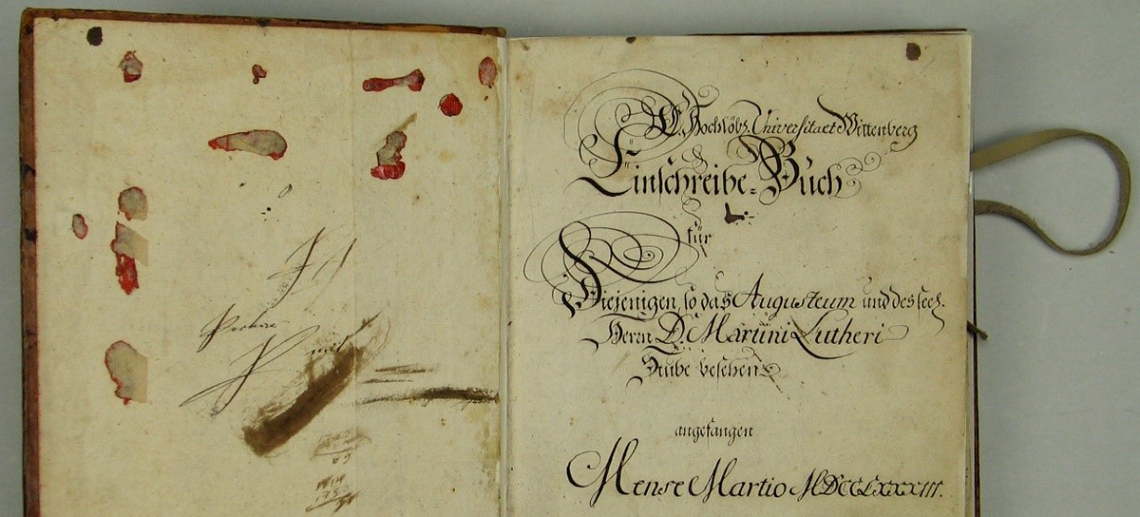 Probier
E. Hochlöbl. Universitaet Wittenberg
Einschreibe-Buch
für
Diejenigen, so das Augusteum und des seel.
Herrn D. Martini Lutheri
Stube besehen
angefangen
Mense Martio MDCCLXXXIII.